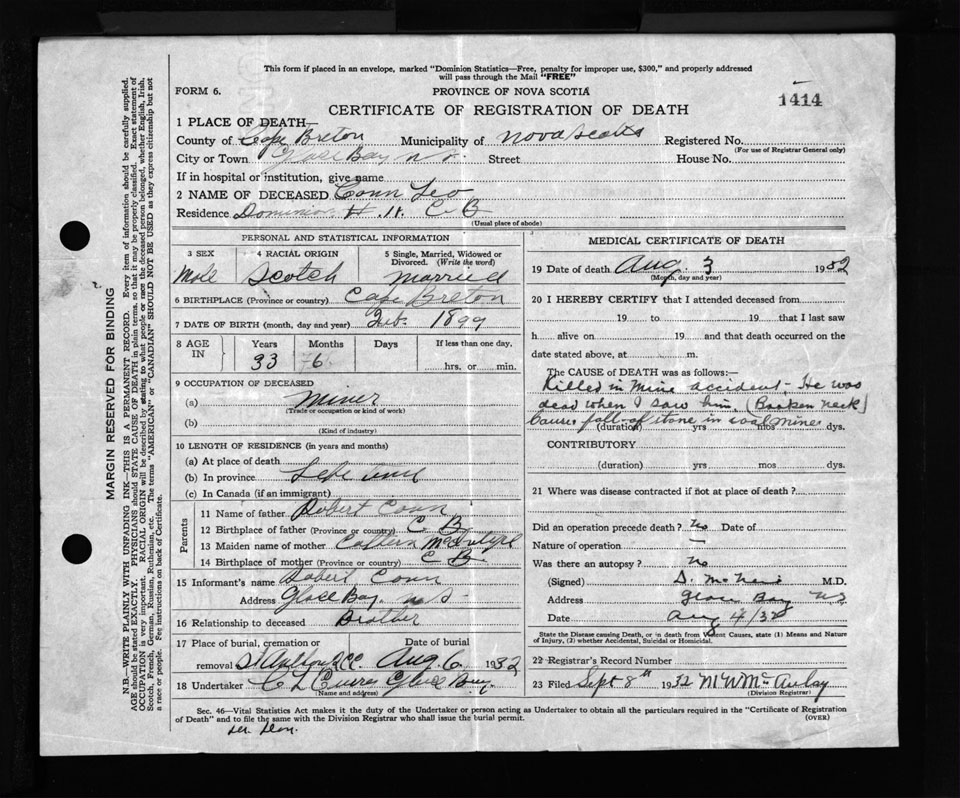 This form if placed in an envelope, marked "Dominion Statistics—Free, penalty for improper use, $300," and properly addressed
will pass through the Mail "FREE"
FORM 6. PROVINCE OF NOVA SCOTIA 1414
CERTIFICATE OF REGISTRATION OF DEATH
1 PLACE OF DEATH—
County of Cape Breton Municipality of Nova Scotia Registered No.
(For use of Registrar General only)
City or Town Glace Bay N.S. Street House No.
If in hospital or institution, give name
2 NAME OF DECEASED Conn Leo
Residence Dominion # 11. C B
(Usual place of abode)
PERSONAL AND STATISTICAL INFORMATION
3 SEX 4 RACIAL ORIGIN 5 Single, Married, Widowed or
Divorced. (Write the word)
Male Scotch Married
6 BIRTHPLACE (Province or country) Cape Breton
7 DATE OF BIRTH (month, day and year) Feb. 1899
8 AGE IN Years Months Days If less than one day,
33 6 hrs. or min.
9 OCCUPATION OF DECEASED
(a) Miner
(Trade or occupation or kind of work)
(b)
(Kind of industry)
10 LENGTH OF RESIDENCE (in years and months)
(a) At place of death
(b) In province Life time
(c) In Canada (if an immigrant)
Parents
11 Name of father Robert Conn
12 Birthplace of father (Province or country) C B
13 Maiden name of mother McIntyre
14 Birthplace of mother (Province or country) C B
15 Informant's name Robert Conn
Address Glace Bay. N S
16 Relationship to deceased Brother
17 Place of burial, cremation or Date of burial
removal Aug. 6 1932
18 Undertaker C L Glace Bay
(Name and address)
MEDICAL CERTIFICATE OF DEATH
19 Date of death Aug. 3 1932
(Month, day and year)
20 I HEREBY CERTIFY that I attended deceased from
19 to 19 that I last saw
h alive on 19 and that death occurred on the
date stated above, at m.
The CAUSE of DEATH was as follows:—
Killed in Mine accident - He was
dead when I saw him. (Broken neck)
Cause fall of stone in coal mines
(duration) yrs mos dys.
CONTRIBUTORY
(duration) yrs. mos dys.
21 Where was disease contracted if not at place of death?
Did an operation precede death? No Date of
Nature of operation —
Was there an autopsy? No
(Signed) D. McNeil M.D.
Address Glace Bay NS
Date Aug 4/32
State the Disease causing Death, or in death from Violent Causes, state (1) Means and Nature
of Injury, (2) whether Accidental, Suicidal or Homicidal.
22 Registrar's Record Number
23 Filed Sept 8th 1932 M W McAulay
(Division Registrar)
Sec. 46—Vital Statistics Act makes it the duty of the Undertaker or person acting as Undertaker to obtain all the particulars required in the "Certificate of Registration
of Death" and to file the same with the Division Registrar who shall issue the burial permit. (OVER)
MARGIN RESERVED FOR BINDING
N.B.—WRITE PLAINLY WITH UNFADING INK—THIS IS A PERMANENT RECORD. Every item of information should be carefully supplied.
AGE should be stated EXACTLY. PHYSICIANS should STATE CAUSE OF DEATH in plain terms, so that it may be properly classified. Exact statement of
OCCUPATION is very important. RACIAL ORIGIN will be described by stating to what people or race the deceased person belonged, whether English, Irish,
Scotch, French, German, Russian, Ruthenian, etc. The terms "AMERICAN" or "CANADIAN" SHOULD NOT BE USED as they express citizenship but not
a race or people. See instructions on back of Certificate.